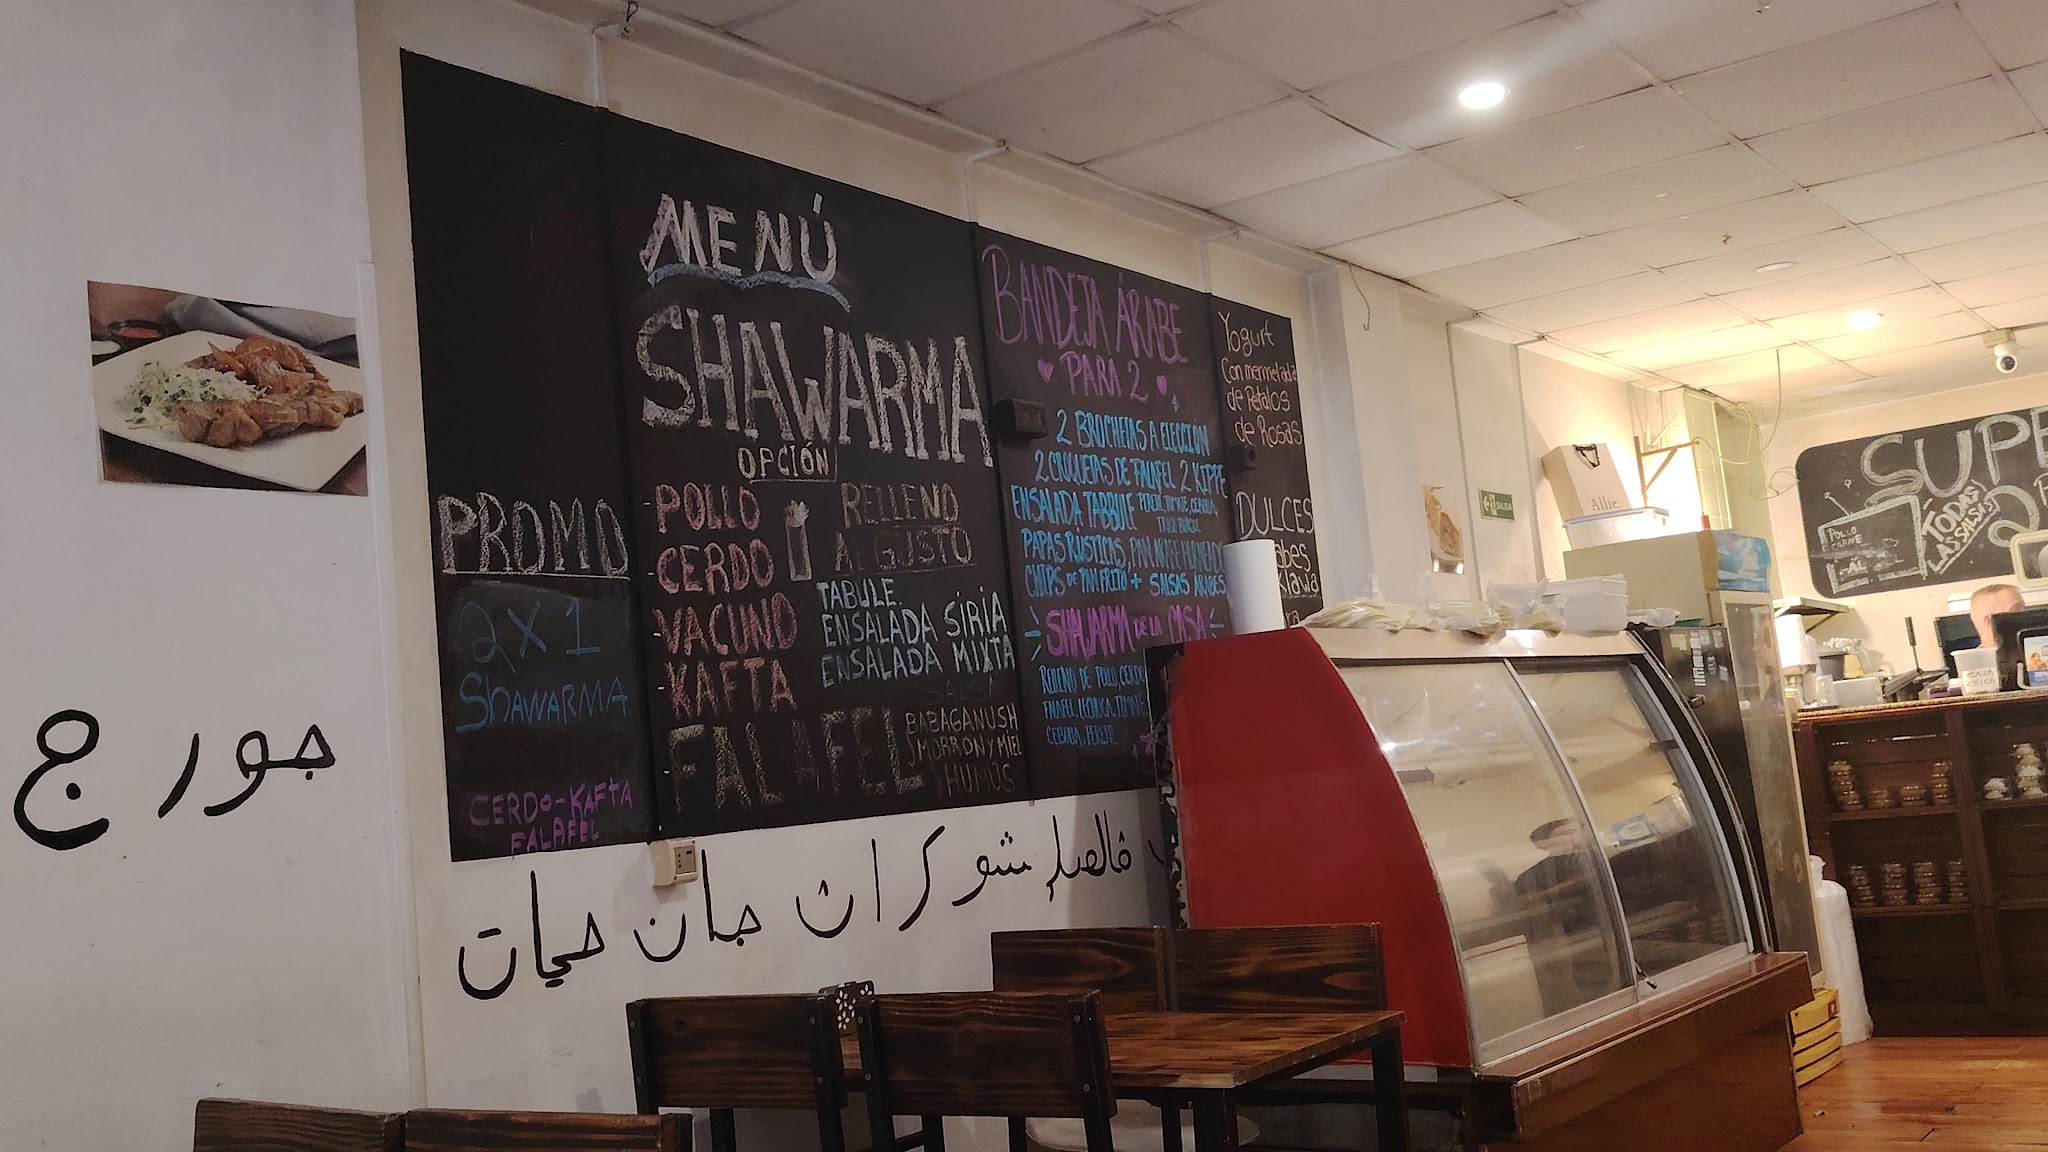 PROMO
2X1
SHAWARMA
CERDO-KAFTA
FALAFEL
MENÚ
SHAWARMA
OPCIÓN
-POLLO
-CERDO
-VACUNO
-KAFTA
-FALAFEL
RELLENO
AL GUSTO
TABULE
ENSALADA SIRIA
ENSALADA MIXTA
SALSA
BABAGANUSH
MORRON Y MIEL
HUMUS
BANDEJA ÁRABE
PARA 2
$
2 BROCHETAS A ELECCIÓN
2 CROQUETAS DE FALAFEL 2 KIPPE
ENSALADA TABBULE PEREJIL, TOMATE, CEBOLLA,
TRIGO BURGUL
PAPAS RÚSTICAS, PAN ARABE HORNEADO
CHIPS DE PAN FRITO + SALSAS ARABES
SHAWARMA DE LA CASA
RELLENO DE POLLO, CERDO
FALAFEL, LECHUGA, TOMATE,
CEBOLLA, PEREJIL
Yogurt
Con mermelada
de Petalos
de Rosas
DULCES
جورج
شوكران جان حيات
Allie.
SALIDA
SUPE
POLLO
CARNE
TODAS
LAS SALSAS
CAJA
CHICA